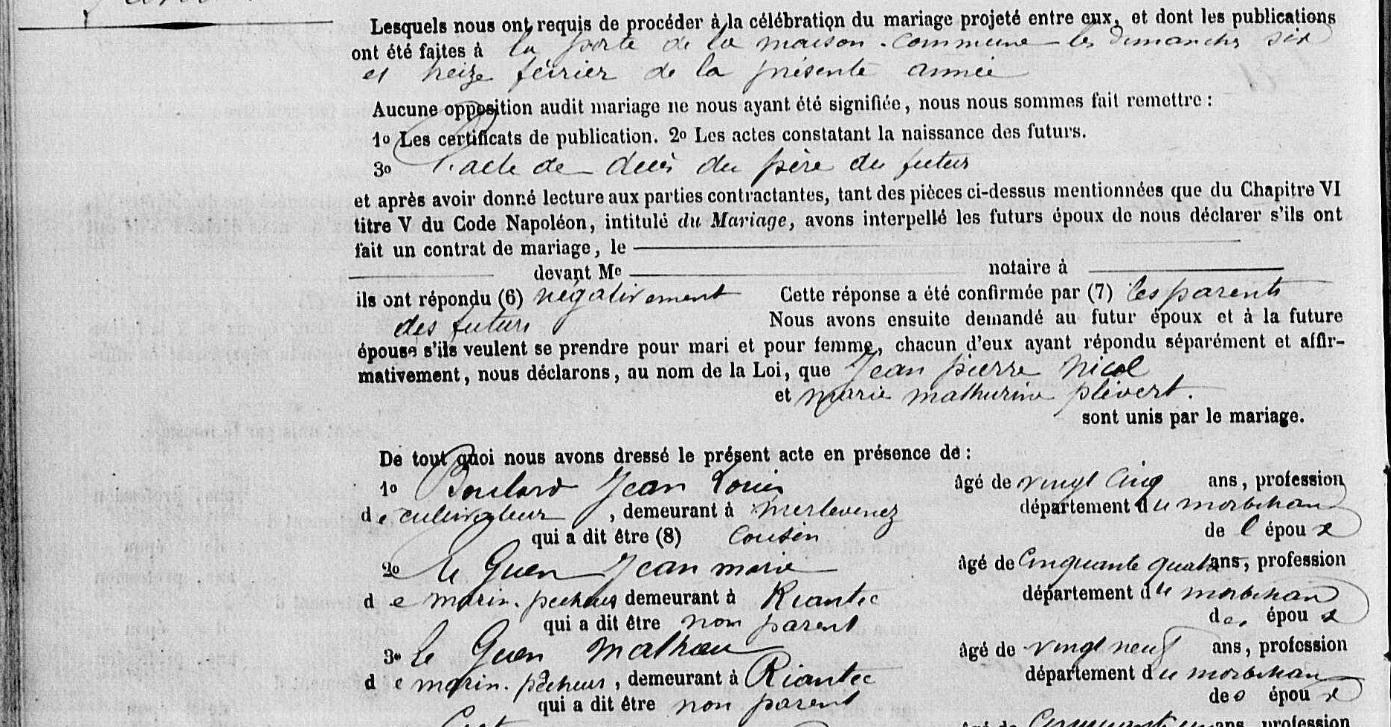 Lesquels nous ont requis de procéder à la célébration du mariage projeté entre eux, et dont les publications
ont été faites à la porte de la maison commune les dimanches six
et treize février de la présente année
Aucune opposition audit mariage ne nous ayant été signifiée, nous nous sommes fait remettre :
1o Les certificats de publication. 2o Les actes constatant la naissance des futurs.
3o L'acte de décès du père du futur
et après avoir donné lecture aux parties contractantes, tant des pièces ci-dessus mentionnées que du Chapitre VI
titre V du Code Napoléon, intitulé du Mariage, avons interpellé les futurs époux de nous déclarer s'ils ont
fait un contrat de mariage, le
devant Me notaire à
ils ont répondu (6) négativement Cette réponse a été confirmée par (7) les parents
des futurs Nous avons ensuite demandé au futur époux et à la future
épouse s'ils veulent se prendre pour mari et pour femme, chacun d'eux ayant répondu séparément et affir-
mativement, nous déclarons, au nom de la Loi, que Jean pierre Nicol
et marie mathurine plévert.
sont unis par le mariage.
De tout quoi nous avons dressé le présent acte en présence de :
1o Boulard Jean Louis âgé de vingt cinq ans, profession
de cultivateur, demeurant à merlevenez département du morbihan
qui a dit être (8) cousin de l'époux
2o Le Guen Jean marie âgé de Cinquante quatre ans, profession
de marin-pecheur demeurant à Riantec département du morbihan
qui a dit être non parent des époux
3o Le Guen Mathieu âgé de vingt neuf ans, profession
de marin-pêcheur, demeurant à Riantec département du morbihan
qui a dit être non parent des époux
ans, profession